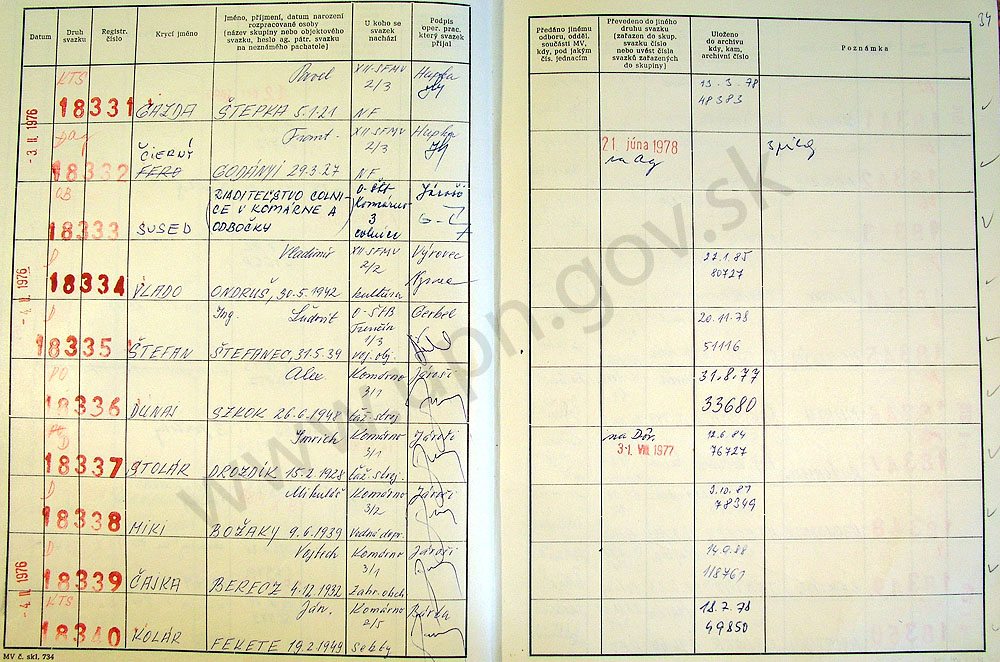 Datum
Druh svazku
Registr. číslo
Krycí jméno
Jméno, příjmení, datum narození
rozpracované osoby
(název skupiny nebo objektového
svazku, heslo ag. pátr. svazku
na neznámého pachatele)
U koho se
svazek
nachází
Podpis
oper. prac.
který svazek
přijal
Předáno jinému
odboru, odděl.
součásti MV,
kdy, pod jakým
čís. jednacím
Převedeno do jiného
druhu svazku
(zařazen do skup.
svazku číslo
nebo uvést čísla
svazků zařazených
do skupiny)
Uloženo
do archivu
kdy, kam,
archivní číslo
Poznámka
34
- 3. II. 1976
KTS
18331
GAZDA
Pavel
ŠTEPKA 5.1.21
XII-SFMV
2/3
NF
Hupka
13.3.78
48383
18332
ČIERNÝ
FERO
Frant.
GODÁNYI 29.3.27
XII-SFMV
2/3
NF
Hupka
21. júna 1978
na Ag
spisg
18333
SUSED
RIADITEĽSTVO COLNI-
CE V KOMÁRNE A
ODBOČKY
Komárno
3
colnice
Jároši
- 4. II. 1976
D
18334
VLADO
Vladimír
ONDRUŠ, 30.5.1942
XII-SFMV
2/2
kultura
Výrovec
22.1.85
80727
D
18335
ŠTEFAN
Ing. Ľudovít
ŠTEFANEC, 31.5.39
O-ŠTB
Trenčín
1/3
voj. obj.
Gerbel
20.11.78
51116
PO
18336
DUNAJ
Alex.
SZKOK 26.6.1948
Komárno
3/1
ťaž. stroj
Jároši
31.8.77
33680
D
18337
STOLÁR
Imrich
DROZDÍK 15.2.1928
Komárno
3/1
ťaž. stroj.
Jároši
na Dôv.
31. VIII. 1977
12.6.84
76727
D
18338
MIKI
Mikuláš
BOŽAKY 9.6.1939
Komárno
3/2
Vodná dopr.
Jároši
9.10.87
78349
- 4. II. 1976
D
18339
ČAJKA
Vojtech
BERECZ 4.12.1932
Komárno
3/1
Zahr. obch
Jároši
118761
KTS
18340
KOLÁR
Ján
FEKETE 19.2.1949
Komárno
2/5
sekty
Bárta
18.7.78
49850
MV č. skl. 734
www.upn.gov.sk